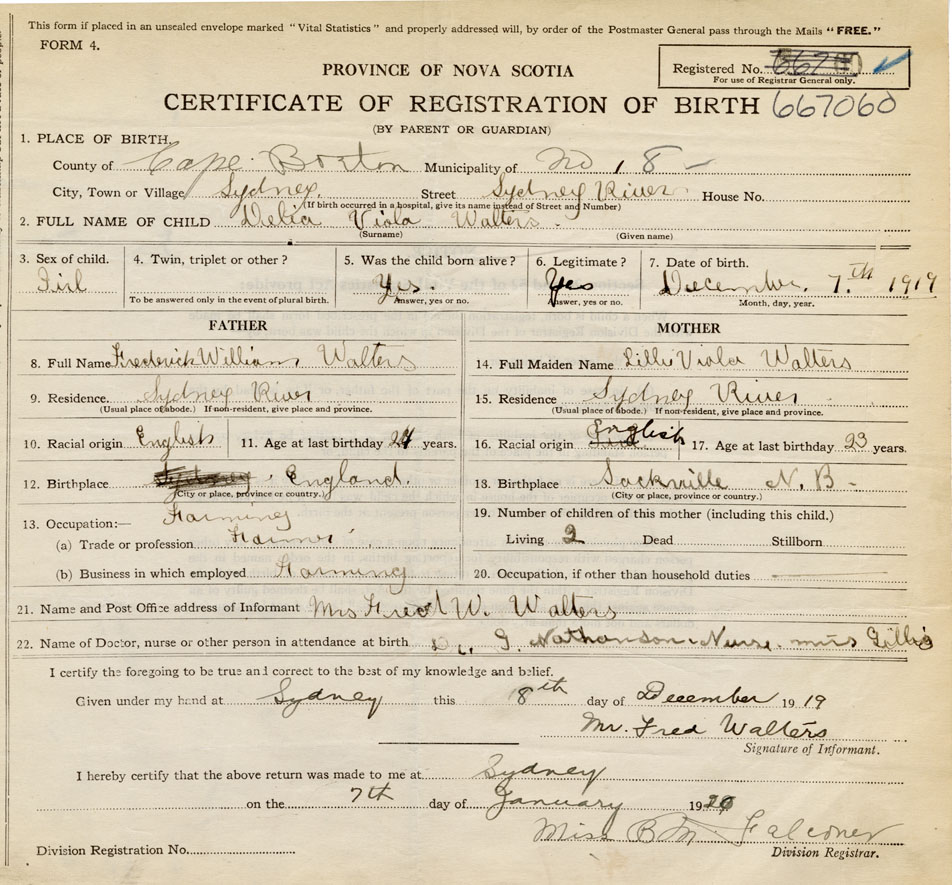 This form if placed in an unsealed envelope marked "Vital Statistics" and properly addressed will, by order of the Postmaster General pass through the Mails "FREE."
FORM 4.
PROVINCE OF NOVA SCOTIA
Registered No.
For use of Registrar General only.
CERTIFICATE OF REGISTRATION OF BIRTH 667060
(BY PARENT OR GUARDIAN)
1. PLACE OF BIRTH.
County of Cape Breton Municipality of No. 8 -
City, Town or Village Sydney. Street Sydney River House No.
(If birth occurred in a hospital, give its name instead of Street and Number)
2. FULL NAME OF CHILD Delia Viola Walters.
(Surname) (Given name)
3. Sex of child. 4. Twin, triplet or other? 5. Was the child born alive? 6. Legitimate? 7. Date of birth.
Girl Yes. Yes December 7.th 1919
To be answered only in the event of plural birth. Answer, yes or no. Answer, yes or no. Month, day, year.
FATHER MOTHER
8. Full Name Frederick William Walters 14. Full Maiden Name Lilli Viola Walters
9. Residence. Sydney River 15. Residence Sydney River
(Usual place of abode.) If non-resident, give place and province. (Usual place of abode.) If non-resident, give place and province.
10. Racial origin English 11. Age at last birthday 24 years. 16. Racial origin English 17. Age at last birthday 23 years.
12. Birthplace Sydney England. 18. Birthplace Sackville N. B -
(City or place, province or country.) (City or place, province or country.)
13. Occupation:— Farming 19. Number of children of this mother (including this child.)
(a) Trade or profession Farmer Living 2 Dead Stillborn
(b) Business in which employed Farming 20. Occupation, if other than household duties
21. Name and Post Office address of Informant Mrs Fred W. Walters
22. Name of Doctor, nurse or other person in attendance at birth Dr. G. Nathanson. Nurse. mrs Gillis
I certify the foregoing to be true and correct to the best of my knowledge and belief.
Given under my hand at Sydney this 8th day of December 1919
Mr. Fred Walters
Signature of Informant.
I hereby certify that the above return was made to me at Sydney
on the 7th day of January 1920
Miss B M. Falconer
Division Registration No. Division Registrar.